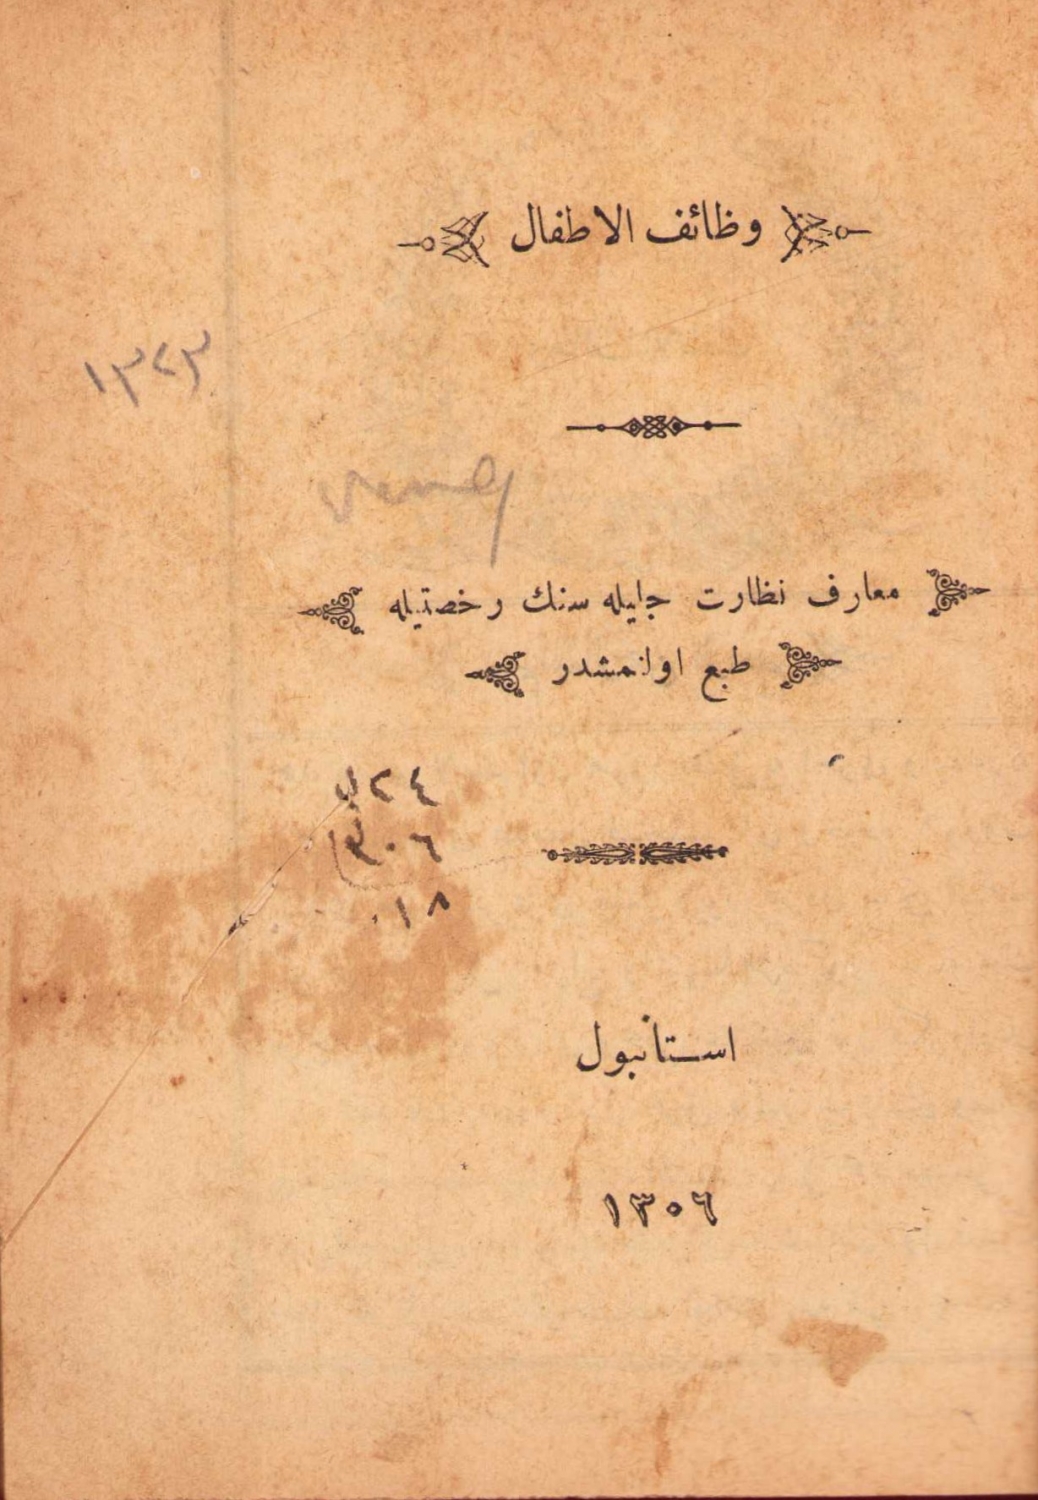 وظائف الاطفال
١٣٢٣
معارف نظارت جليله سنك رخصتيله
طبع اولنمشدر
٢٤
٣٠٦
١٨
استانبول
١٣٠٦